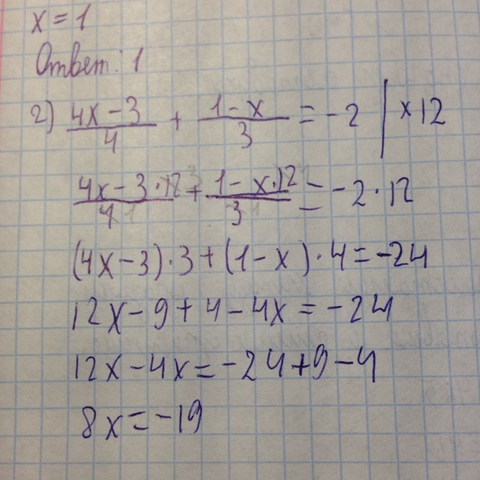 x = 1
Ответ: 1
2) (4x - 3)/4 + (1 - x)/3 = -2 | ×12
(4x - 3 · 12)/4 + (1 - x · 12)/3 = -2 · 12
(4x - 3) · 3 + (1 - x) · 4 = -24
12x - 9 + 4 - 4x = -24
12x - 4x = -24 + 9 - 4
8x = -19